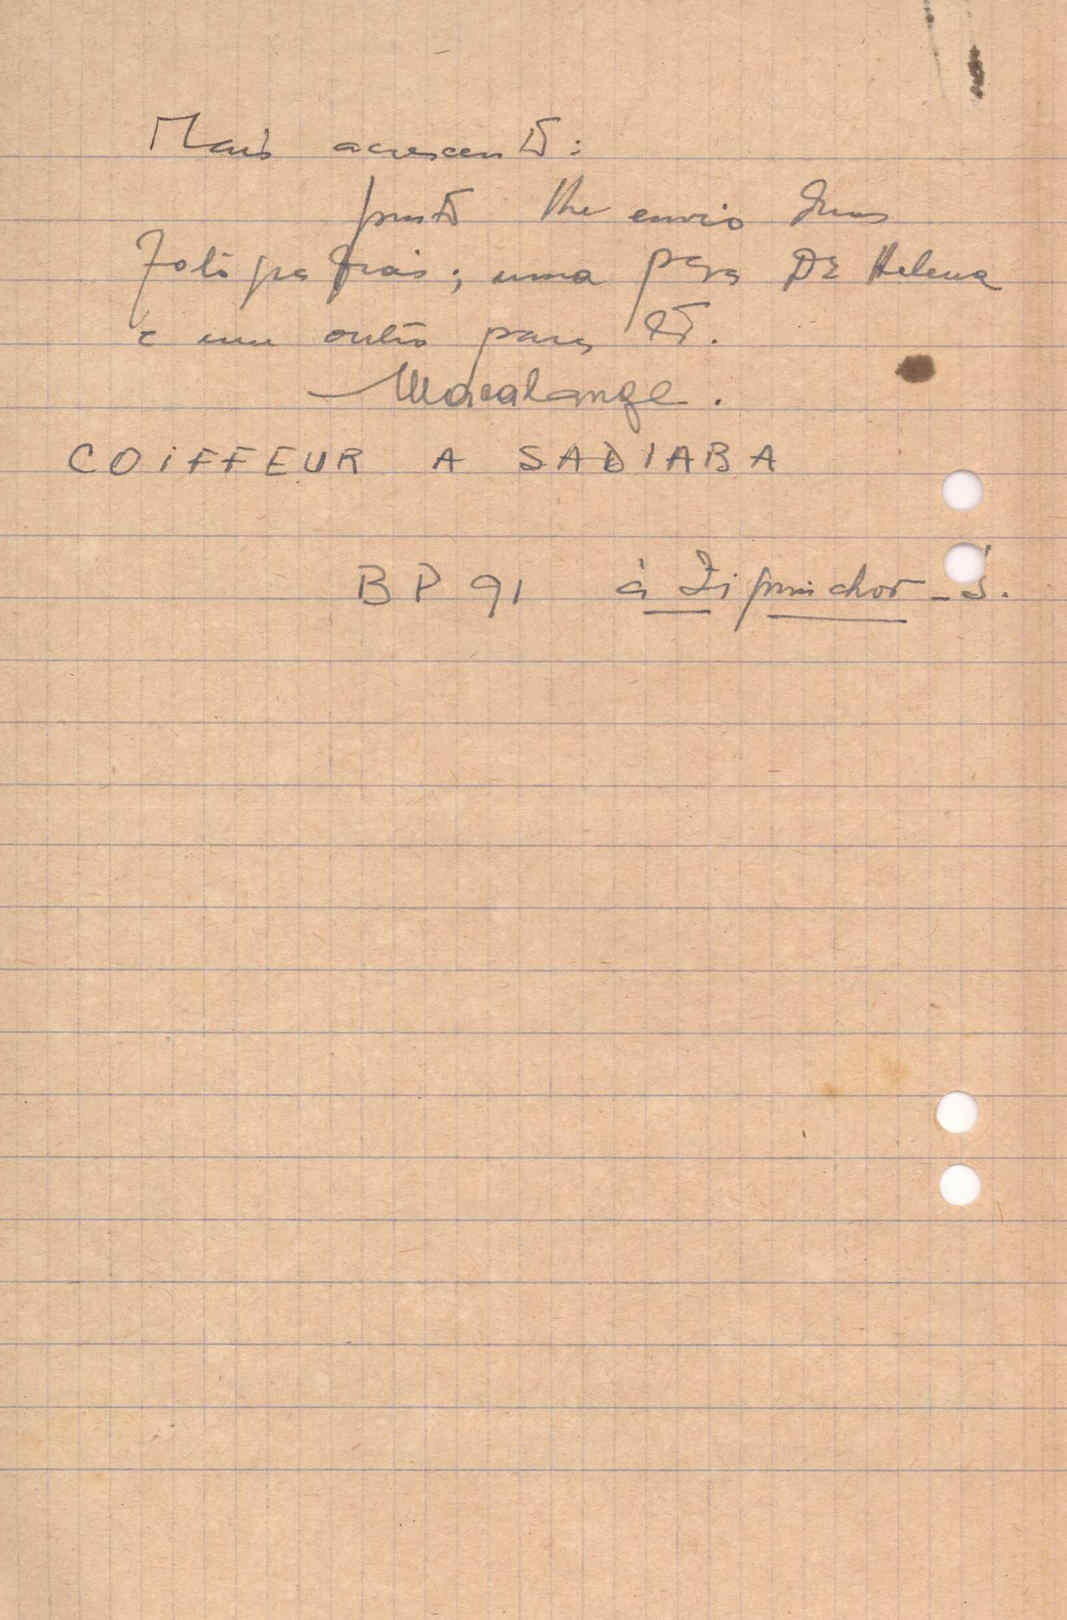 Mais acrescento:
junto lhe envio duas
fotografias; uma para DE Helena
e uma outra para
Maralange.
COIFFEUR A SADIABA
BP 91 à Ziguinchor - S.